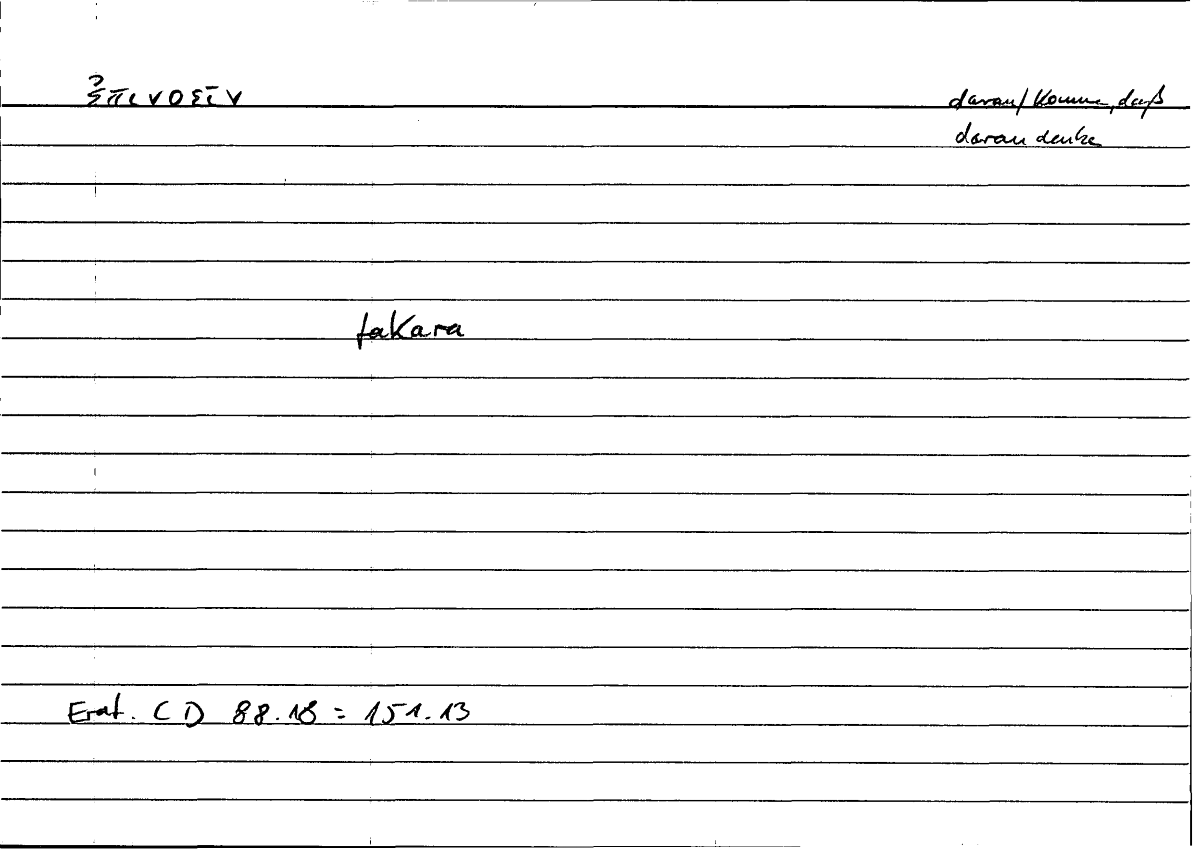 ἐπινοεῖν
darauf komme, daß
daran denke
fakara
Erat. CD 88.18 = 151.13